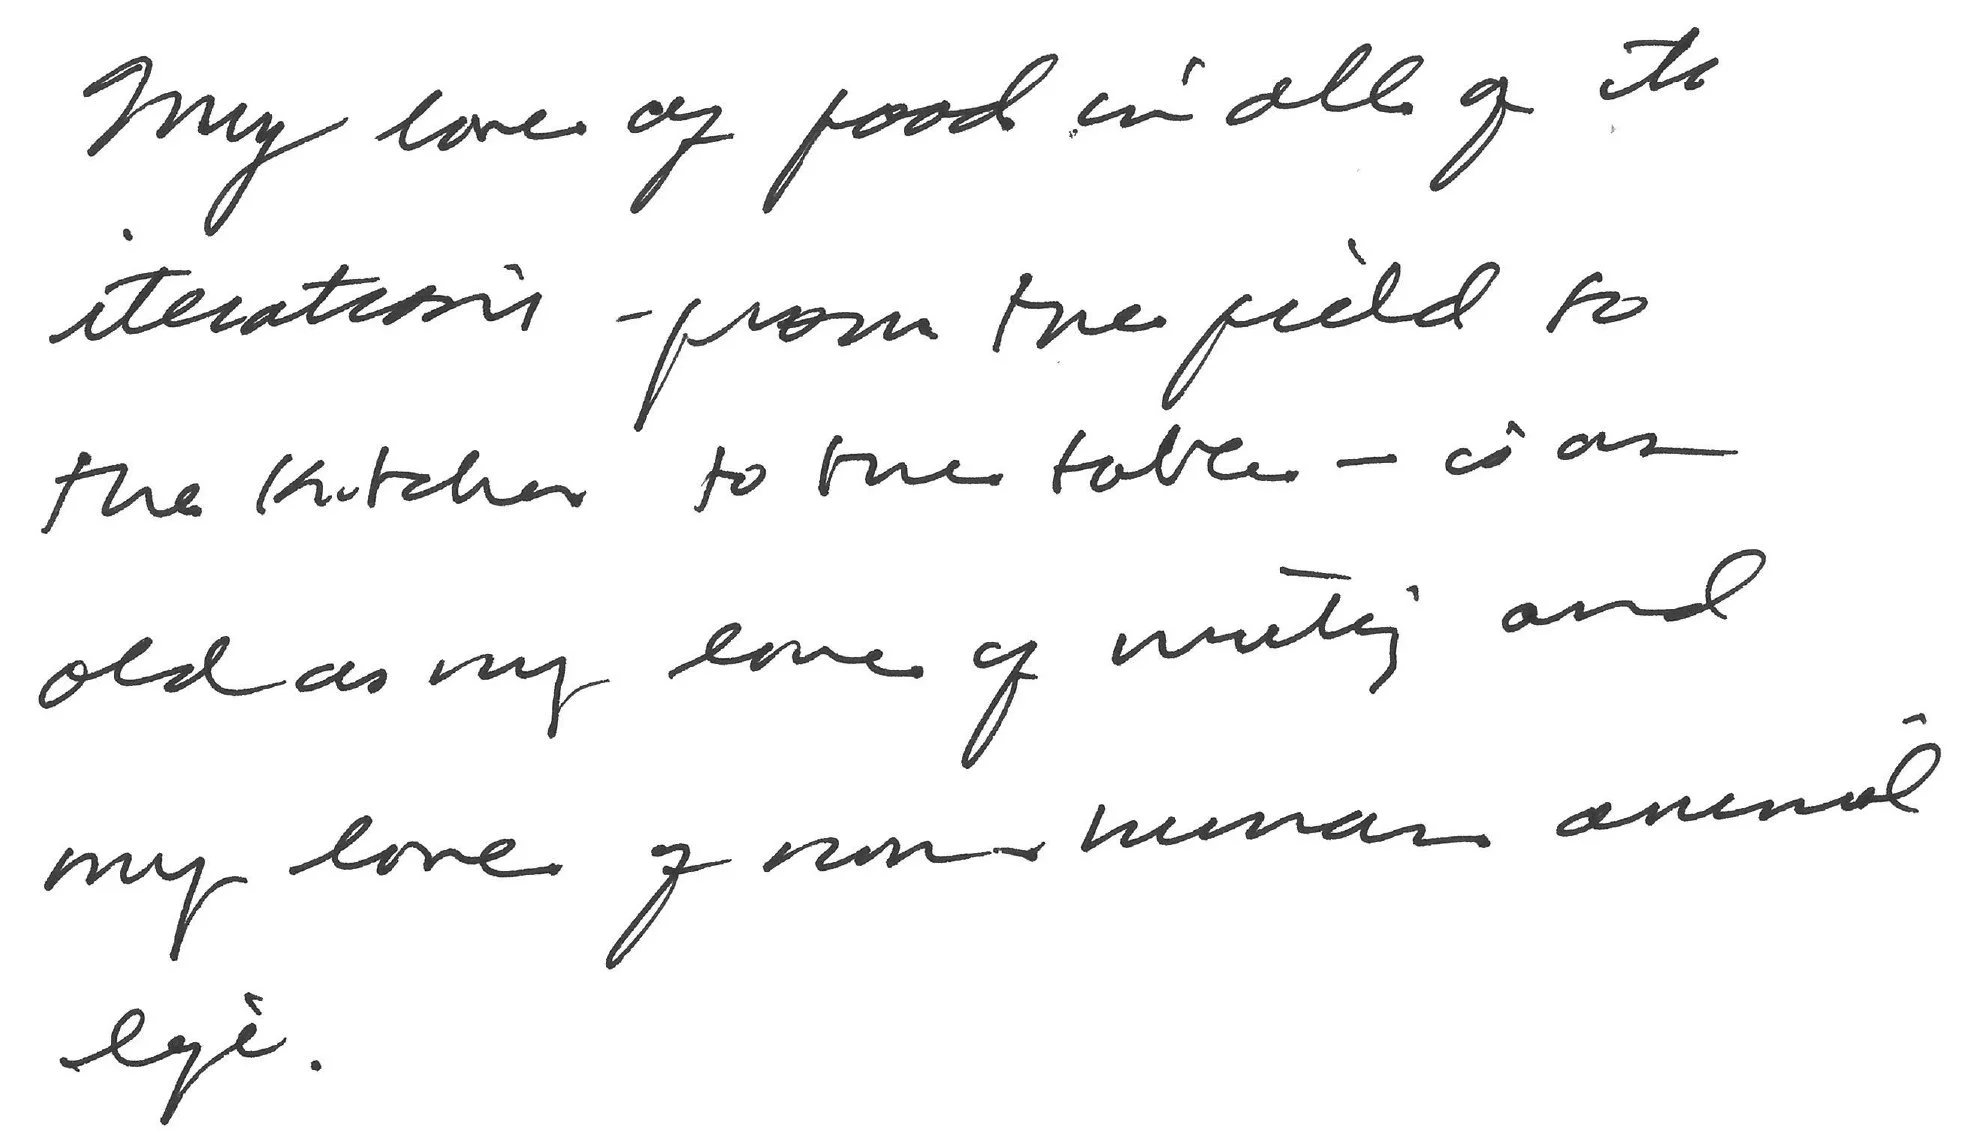 My love of food in all of its
iterations - from the field to
the kitchen to the table - is as
old as my love of writing and
my love of non-human animal
life.